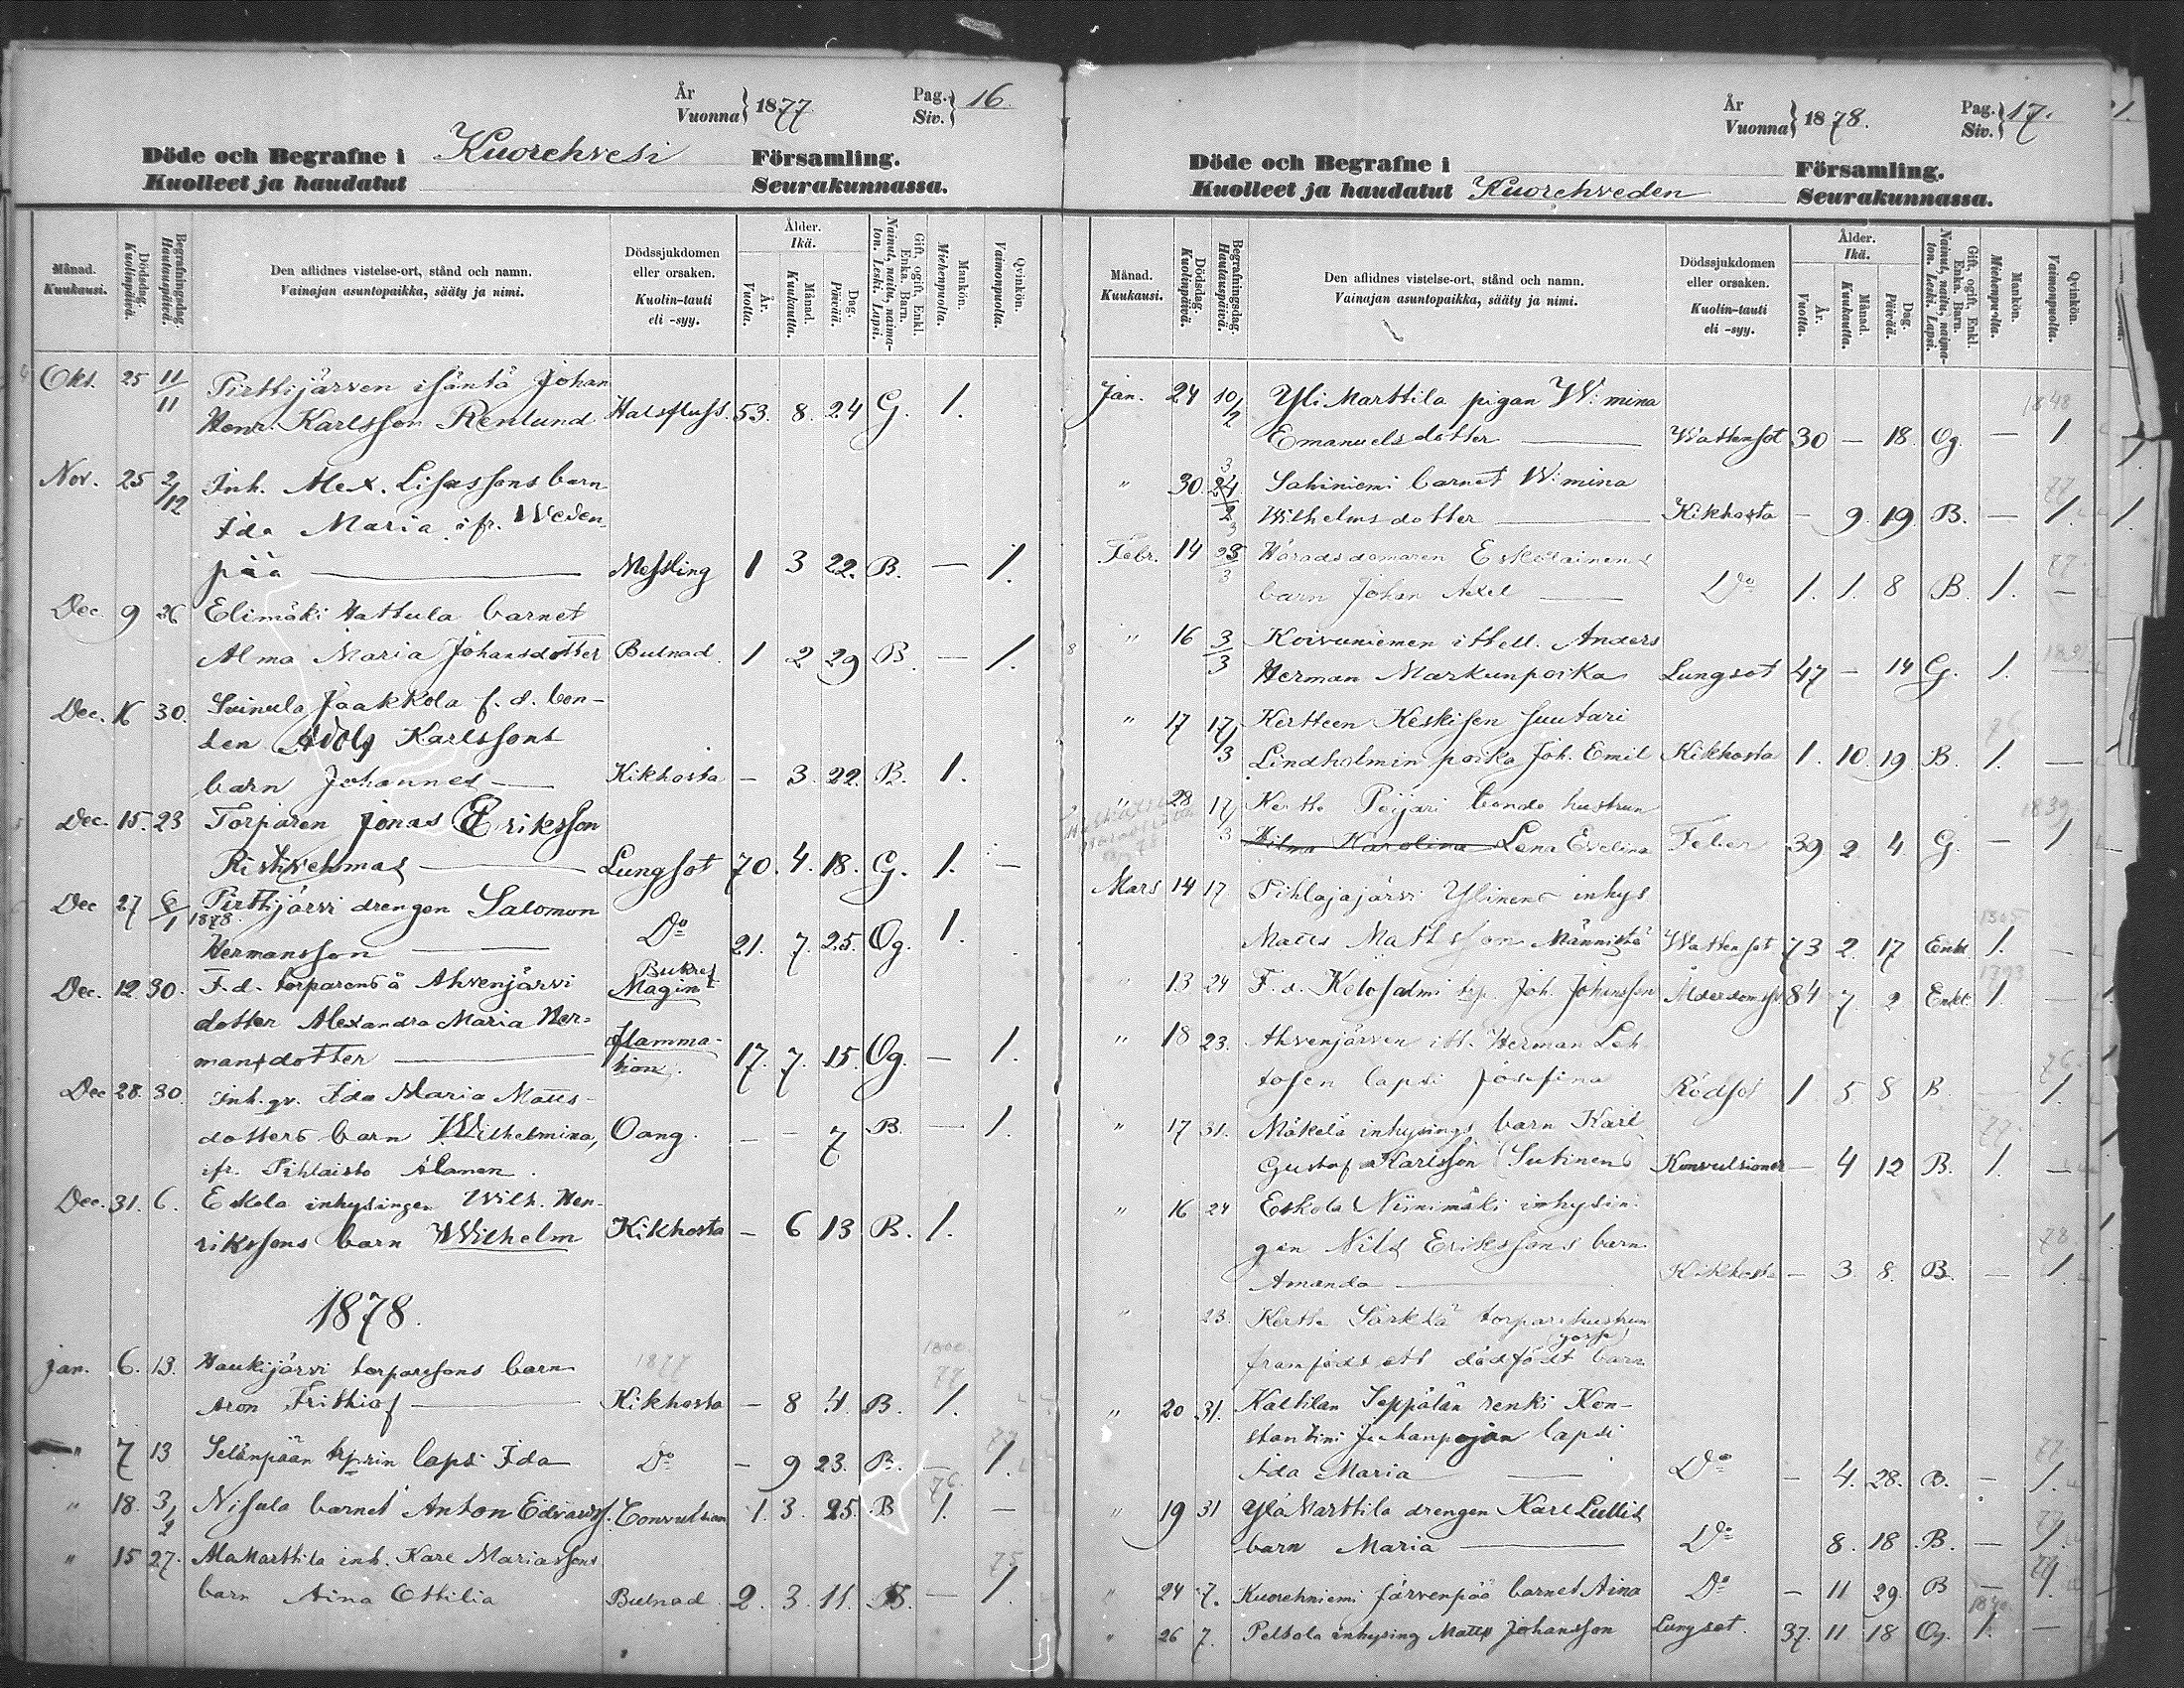 År
Vuonna 1877
Pag.
Siv. 16.
Döde och Begrafne i Kuorehvesi Församling.
Kuolleet ja haudatut Seurakunnassa.
Månad. Kuukausi.
Dödsdag. Kuolinpäivä.
Begrafningsdag. Hautauspäivä.
Den aflidnes vistelse-ort, stånd och namn.
Vainajan asuntopaikka, sääty ja nimi.
Dödssjukdomen eller orsaken.
Kuolin-tauti eli -syy.
Ålder. Ikä.
År. Vuotta.
Månad. Kuukautta.
Dag. Päivää.
Gift, ogift, Enkl. Enka. Barn.
Nainut, naitu, naimaton. Leski. Lapsi.
Mankön. Miehenpuolta.
Qvinkön. Vaimonpuolta.
Okt. 25 11/11 Pirttijärven isäntä Johan
Henr. Karlsson Renlund Halsfluss. 53. 8. 24 G. 1.
Nov. 25 2/12 Inh. Alex. Lisassons barn
Ida Maria ifr. Weden-
pää — Messling 1 3 22. B. — 1.
Dec. 9 26 Elimäki Hattula barnet
Alma Maria Johansdotter Bulnad. 1 2 29 B. — 1.
Dec. 16 30. Suinula Jaakkola f. d. bon-
den Adolf Karlssons
barn Johannes — Kikhosta — 3. 22. B. 1.
Dec. 15. 23 Torparen Jonas Eriksson
Lungsot 70. 4. 18. G. 1. —
Dec 27 6/1 1878. Pirttijärvi drengen Salomon
Hermansson — Do 21. 7. 25. Og. 1.
Dec. 12 30. F. d. torparens å Ahvenjärvi Bukref
dotter Alexandra Maria Her- Magin
mansdotter — flamma-
tion. 17. 7. 15. Og. — 1.
Dec 28. 30. Inh. qv. Ida Maria Matts-
dotters barn Wilhelmina, Oang. — — 7 B. — 1.
ifr. Pihlaisto Alanen.
Dec. 31. 6. Eskola inhysingen Wilh. Hen-
rikssons barn Wilhelm Kikhosta — 6 13 B. 1.
1878.
Jan. 6. 13. Haukijärvi torparesons barn 1877
Aron Frithiof — Kikhosta — 8 4. B. 77 1.
" 7 13 Selänpään trp:rin lapsi Ida Do — 9 23. B. — 77 1.
" 18. 3/2 Nisula barnet Anton Edvardss. Convulsion 1. 3. 25. B 76. 1. —
" 15 27. Ala Marttila inh. Karl Mariassons
barn Aina Ottilia Bulnad. 2. 3. 11. B. — 75 1.
År
Vuonna 1878.
Pag.
Siv. 17.
Döde och Begrafne i Församling.
Kuolleet ja haudatut Kuorehveden Seurakunnassa.
Månad. Kuukausi.
Dödsdag. Kuolinpäivä.
Begrafningsdag. Hautauspäivä.
Den aflidnes vistelse-ort, stånd och namn.
Vainajan asuntopaikka, sääty ja nimi.
Dödssjukdomen eller orsaken.
Kuolin-tauti eli -syy.
Ålder. Ikä.
År. Vuotta.
Månad. Kuukautta.
Dag. Päivää.
Gift, ogift, Enkl. Enka. Barn.
Nainut, naitu, naimaton. Leski. Lapsi.
Mankön. Miehenpuolta.
Qvinkön. Vaimonpuolta.
Jan. 24 10/2 Yli Marttila pigan W:mina 1848
Emanuelsdotter — Wattensot 30 — 18. Og. — 1
" 30. Sahiniemi barnet W:mina 77
Wilhelmsdotter — Kikhosta — 9. 19 B. — 1.
Febr. 14 Häradsdomaren Eskolainens 77
barn Johan Axel — Do 1. 1. 8 B. 1. —
" 16 3/3 Koivuniemen itsell. Anders
Herman Markunpoika Lungsot 47 — 14 G. 1. —
" 17 17/3 Kertteen Keskisen suutari 76
Lindholmin poika Joh. Emil Kikhosta 1. 10. 19. B. 1. —
" 28 17/3 Kertte Peijari bonde hustrun 1839
Wilma Karolina Lena Evelina Feber 39 2 4. G. — 1
Mars 14 17 Pihlajajärvi Ylinens inhys
Matts Mattsson Männistö Wattensot 73 2. 17 Enkl. 1. — 1805
" 13 24 F. d. Ketosalmi trp. Joh. Johansson Ålderdomssv. 84 7. 2 Enkl. 1. — 1793
" 18 23. Ahvenjärven its. Herman Leh-
tosen lapsi Josefina Rödsot 1. 5 8 B — 76 1.
" 17 31. Mäkelä inhysings barn Karl 77.
Gustaf Karlsson (Sutinens) Konvulsioner — 4 12 B. 1. —
" 16 24 Eskola Niinimäki inhysin-
gen Nils Erikssons barn 78
Amanda — Kikhosta — 3. 8. B. — 1.
" 23. Kertte Särkkä torparehustrun
framfödt ett dödfödt barn (gosse)
" 20 31. Kaltilan Seppälän renki Kon-
stantini Juhanpojan lapsi 77
Ida Maria — Do — 4. 28. B. — 1.
" 19 31 Ylä Marttila drengen Karl
barn Maria — Do 8. 18 B. — 1.
" 24 7. Kuorehniemi Järvenpää barnet Aina Do — 11 29. B — 1.
" 26 7. Peltola inhysing Matts Johansson Lungsot. 37. 11 18 Og. 1. — 1840